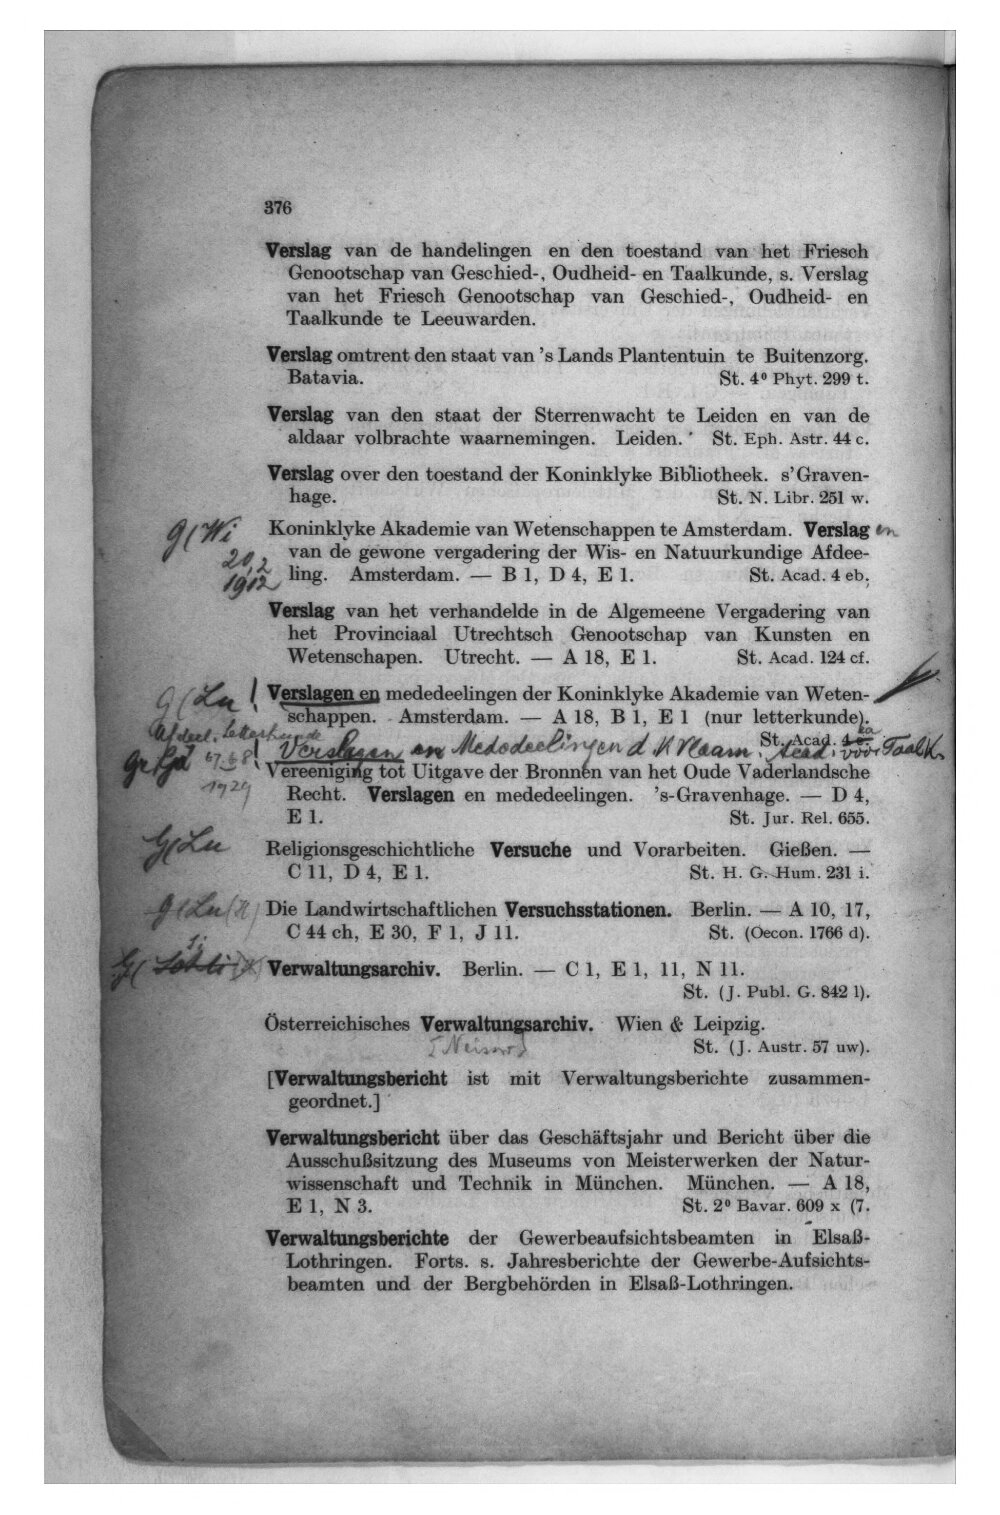 376
Verslag van de handelingen en den toestand van het Friesch
Genootschap van Geschied-, Oudheid- en Taalkunde, s. Verslag
van het Friesch Genootschap van Geschied-, Oudheid- en
Taalkunde te Leeuwarden.
Verslag omtrent den staat van 's Lands Plantentuin te Buitenzorg.
Batavia. St. 4⁰ Phyt. 299 t.
Verslag van den staat der Sterrenwacht te Leiden en van de
aldaar volbrachte waarnemingen. Leiden. St. Eph. Astr. 44 c.
Verslag over den toestand der Koninklyke Bibliotheek. s'Graven-
hage. St. N. Libr. 251 w.
G(Wi Koninklyke Akademie van Wetenschappen te Amsterdam. Verslag en
20,2 van de gewone vergadering der Wis- en Natuurkundige Afdee-
1912 ling. Amsterdam. — B 1, D 4, E 1. St. Acad. 4 eb.
Verslag van het verhandelde in de Algemeene Vergadering van
het Provinciaal Utrechtsch Genootschap van Kunsten en
Wetenschapen. Utrecht. — A 18, E 1. St. Acad. 124 cf.
G(Lu ! Verslagen en mededeelingen der Koninklyke Akademie van Weten-
schappen. Amsterdam. — A 18, B 1, E 1 (nur letterkunde).
Afdeel. Letterkunde St. Acad. 4
! Verslagen en Mededeelingen d. K Vlaam. Acad. voor Taalk.
Vereeniging tot Uitgave der Bronnen van het Oude Vaderlandsche
1929 Recht. Verslagen en mededeelingen. 's-Gravenhage. — D 4,
E 1. St. Jur. Rel. 655.
G(Lu Religionsgeschichtliche Versuche und Vorarbeiten. Gießen. —
C 11, D 4, E 1. St. H. G. Hum. 231 i.
G(Lu Die Landwirtschaftlichen Versuchsstationen. Berlin. — A 10, 17,
C 44 ch, E 30, F 1, J 11. St. (Oecon. 1766 d).
Verwaltungsarchiv. Berlin. — C 1, E 1, 11, N 11.
St. (J. Publ. G. 842 l).
Österreichisches Verwaltungsarchiv. Wien & Leipzig.
St. (J. Austr. 57 uw).
[Verwaltungsbericht ist mit Verwaltungsberichte zusammen-
geordnet.]
Verwaltungsbericht über das Geschäftsjahr und Bericht über die
Ausschußsitzung des Museums von Meisterwerken der Natur-
wissenschaft und Technik in München. München. — A 18,
E 1, N 3. St. 2⁰ Bavar. 609 x (7.
Verwaltungsberichte der Gewerbeaufsichtsbeamten in Elsaß-
Lothringen. Forts. s. Jahresberichte der Gewerbe-Aufsichts-
beamten und der Bergbehörden in Elsaß-Lothringen.